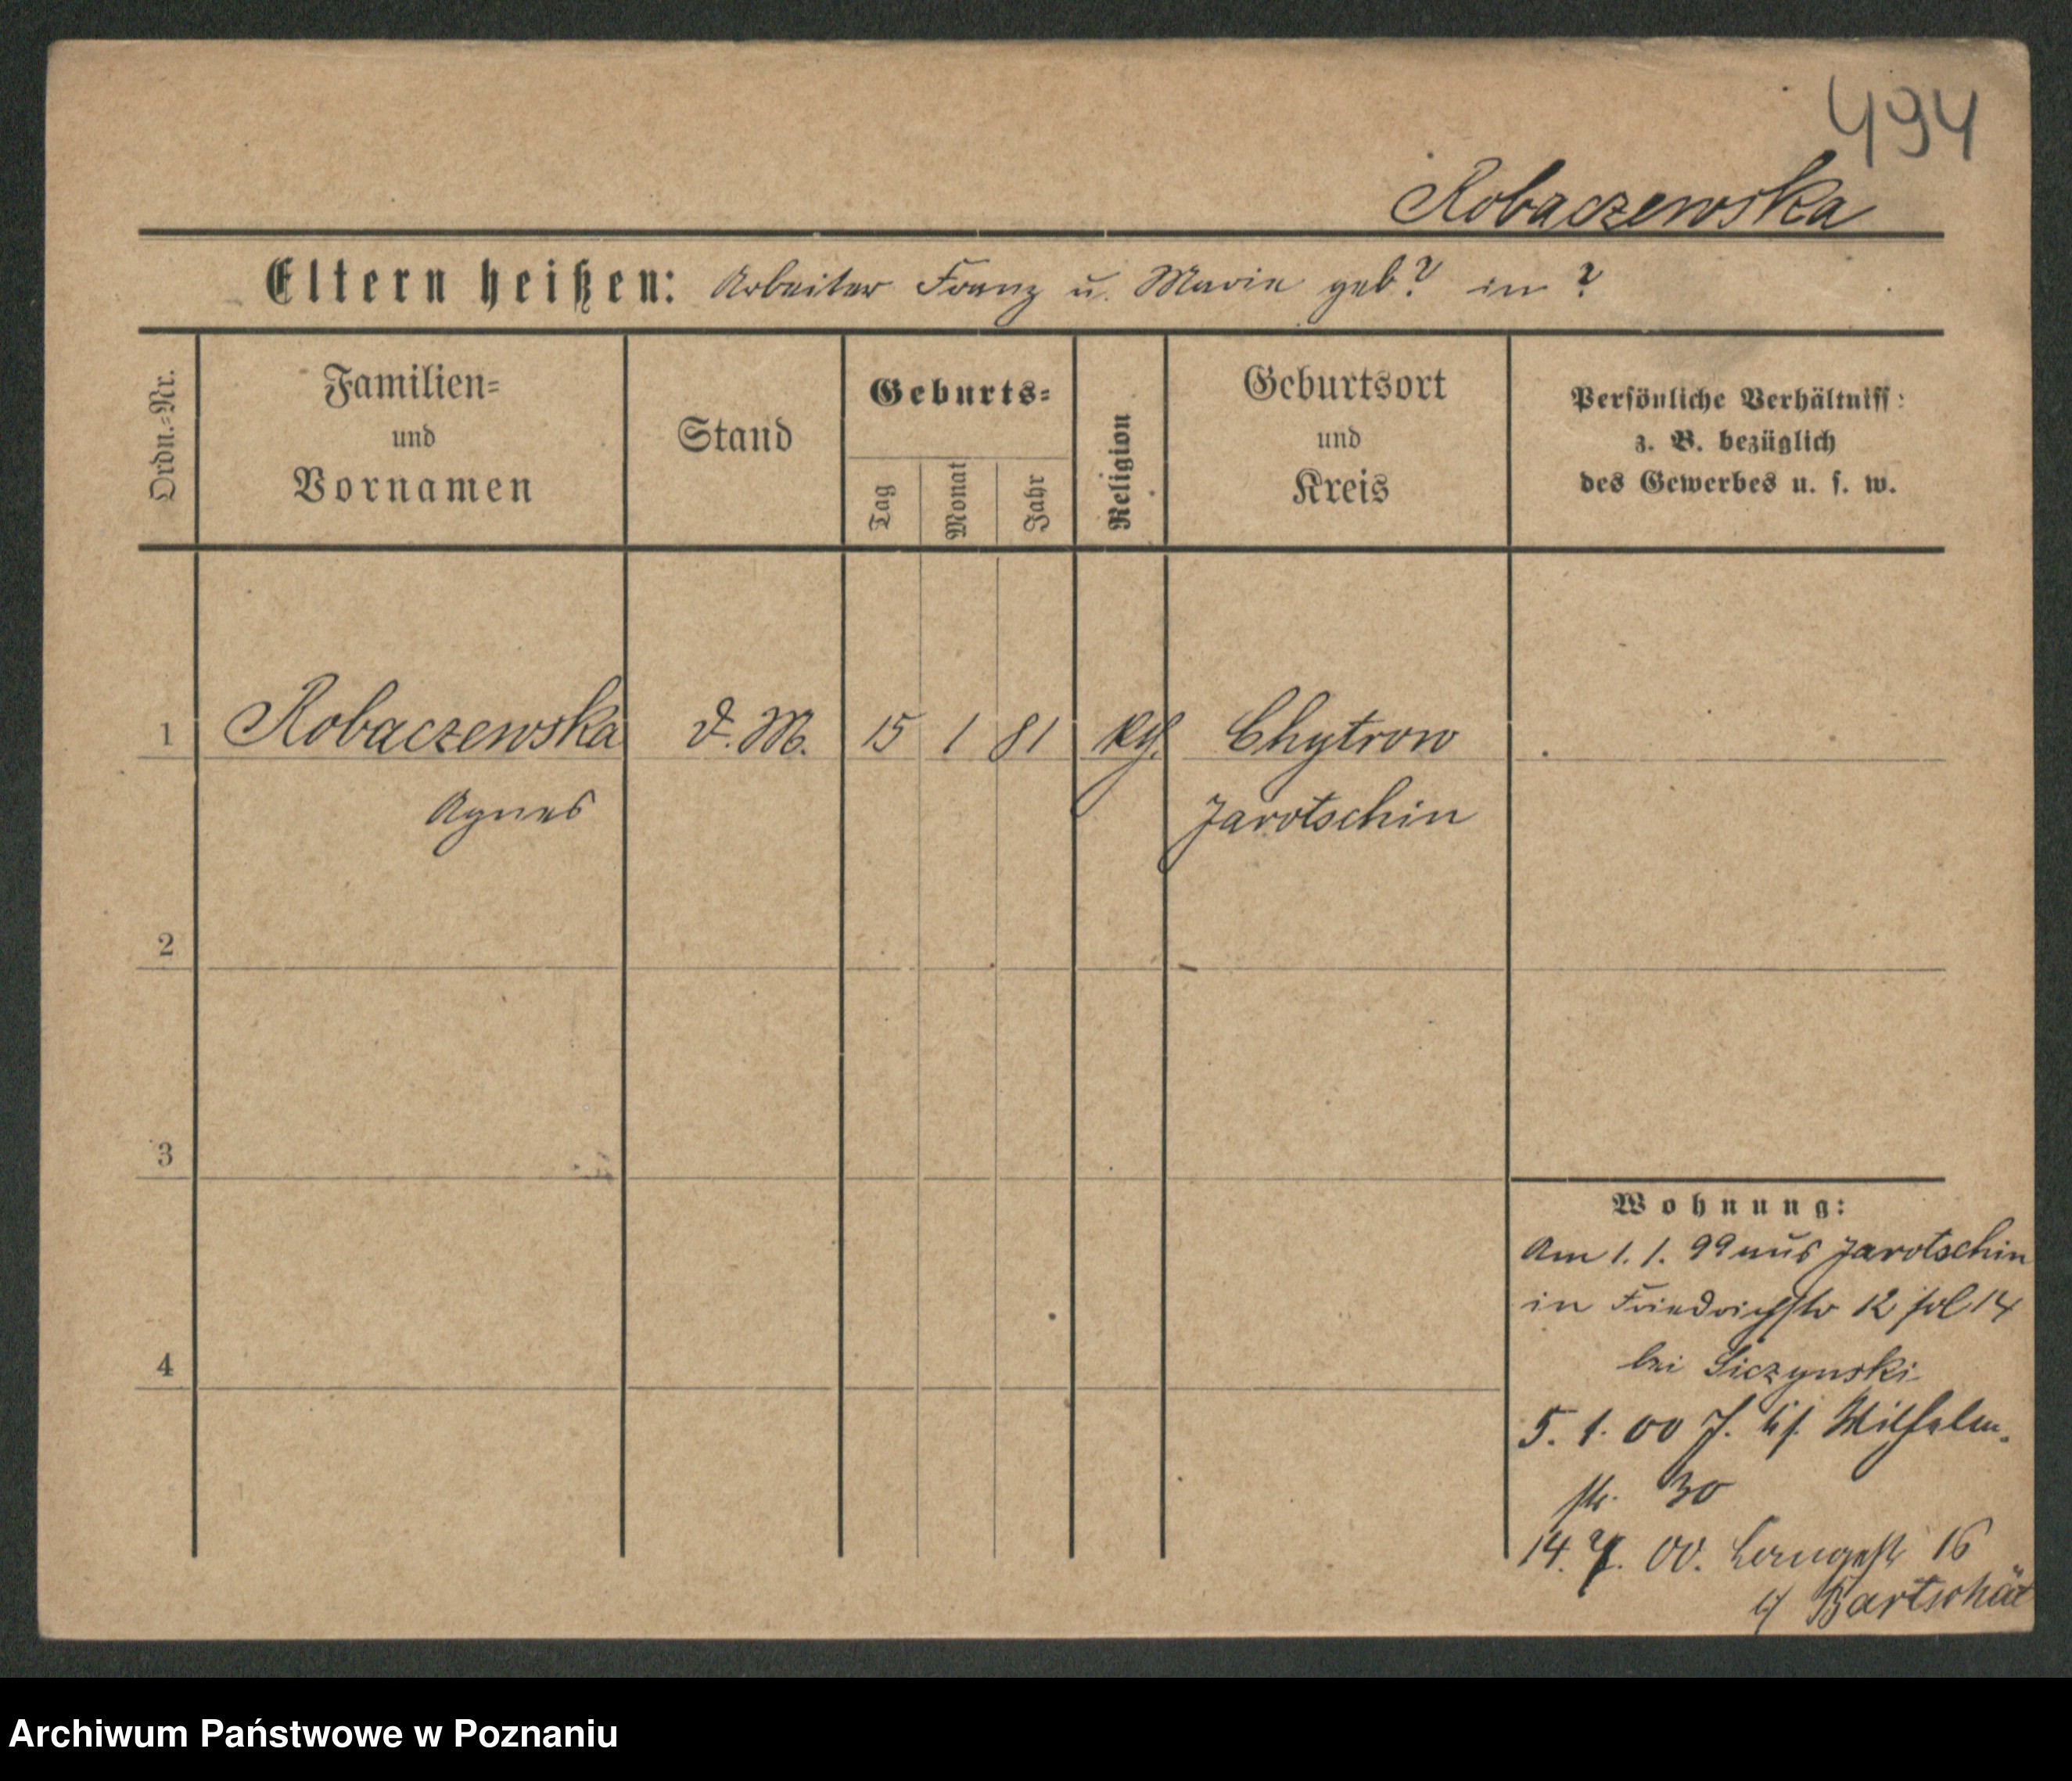 494
Robaczewska
Eltern heißen: Arbeiter Franz u. Marie geb? in ?
Ordn.=Nr.
Familien=
und
Vornamen
Stand
Geburts=
Tag
Monat
Jahr
Religion
Geburtsort
und
Kreis
Persönliche Verhältniss:
z. B. bezüglich
des Gewerbes u. s. w.
1 Robaczewska d. M. 15 1 81 kth. Chytrow
Agnes Jarotschin
2
3
4
Wohnung:
Am 1. 1. 99 aus Jarotschin
in Friedrichstr 12 fol 14
bei Siczynski
5. 1. 00 J. Wilhelm-
str. 30
14. 7. 00. Langestr 16
Bartschät
Archiwum Państwowe w Poznaniu